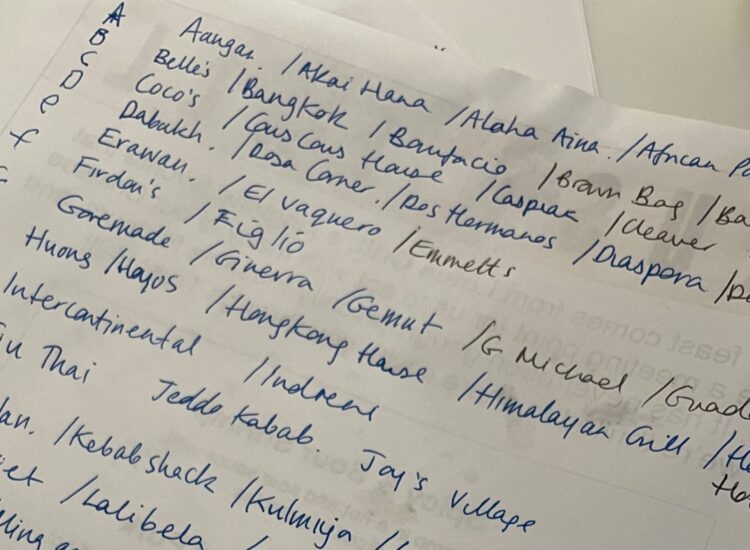 A Aangan. /Akai Hana /Alaha Aina. /African
B Belle's /Bangkok /Bonifacio /Brown Bag
C Coco's /Cous Cous House /Caspian /Cleaver
D Dabakh. /Dosa Corner. /Dos Hermanos /Diaspora
e Erawan. /El Vaquero /Emmetts
f Firdous /Figlió
Goremade /Ginevra /Gemut /G Michael
Huong /Hoyos /Hongkong House /Himalayan Grill
Intercontinental /Indreni
Thai Jeddo Kabab. Joy's Village
/Kebab shack /Kulmiye
/Lalibela